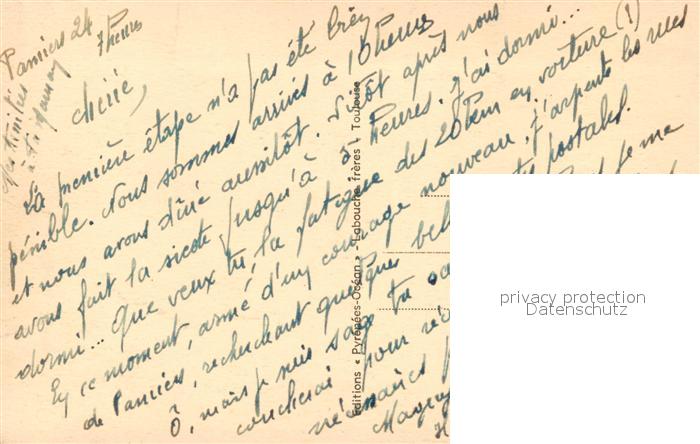 Pamiers 24
7 heures
Chérie,
La première étape n'a pas été très
pénible. Nous sommes arrivés à 10 heures
et nous avons dîné aussitôt. Sitôt après nous
avons fait la sieste jusqu'à 5 heures. J'ai dormi...
dormi... Que veux tu, la fatigue des 20 Km en voiture (!)
En ce moment, armé d'un courage nouveau, j'arpente les rues
de Pamiers, recherchant quelques belles cartes postales.
Ô, mais je suis sage tu sa
je me
coucherai pour
Editions « Pyrénées-Océan » - Labouche frères - Toulouse
privacy protection
Datenschutz